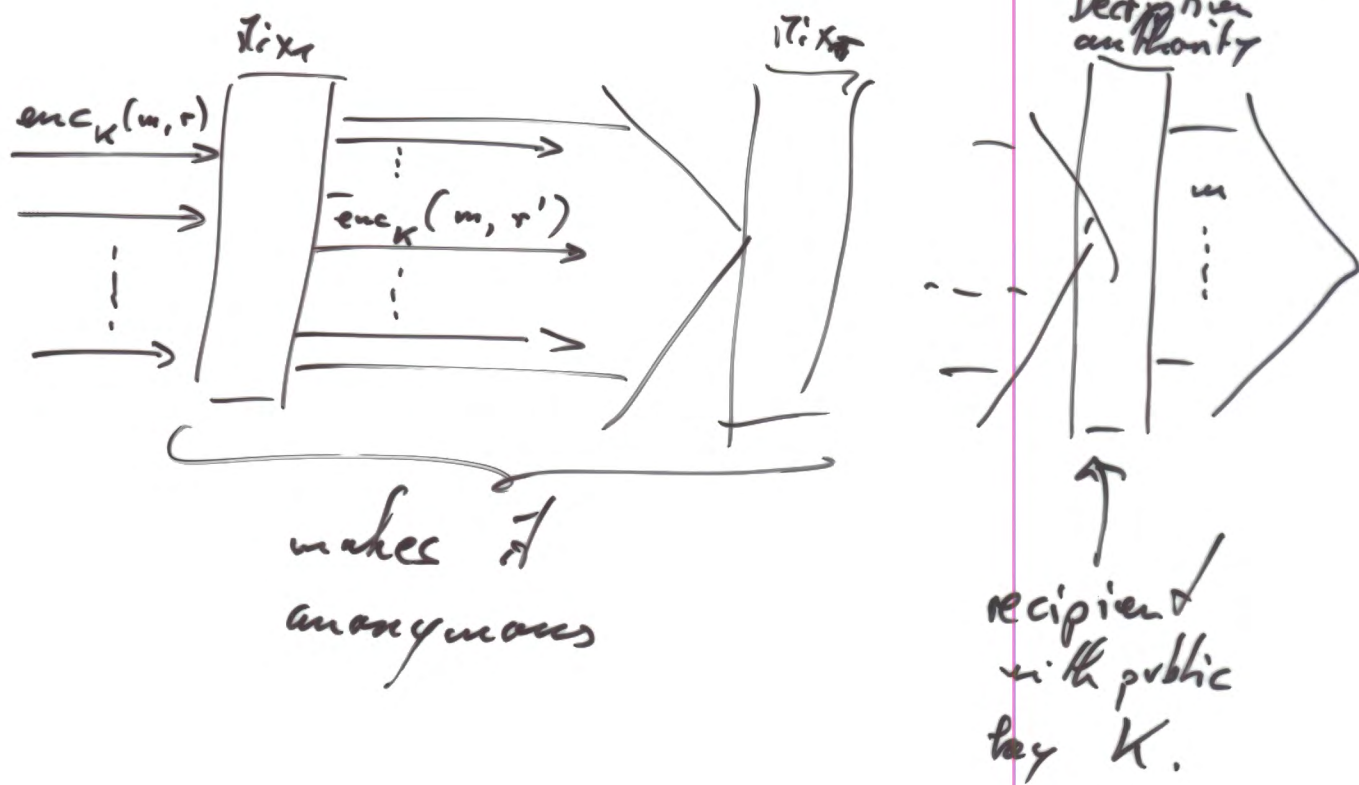 Mix₁
Decryption
authority
enc_K(m, r)
enc_K(m, r')
m
makes it
anonymous
recipient
with public
key K.